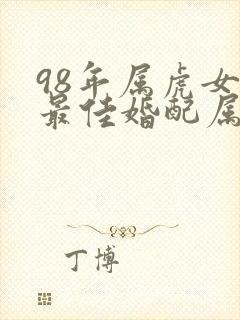 98年属虎女
最佳婚配属
丁博